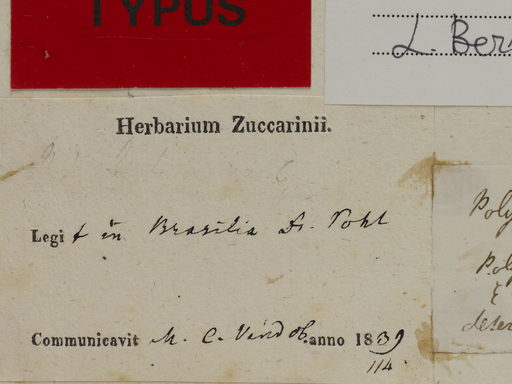 TYPUS
L. Ber
Herbarium Zuccarinii.
Legit in Brasilia Dr. Pohl
Communicavit M. C. Vindob. anno 1839
114.
Poly
Poly
&
deter